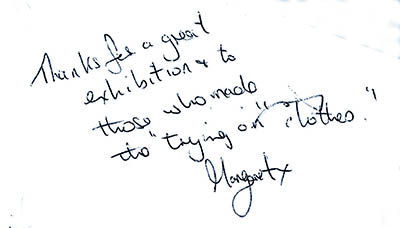 Thanks for a great
exhibition & to
those who made
the "trying on" clothes."
Margaret x